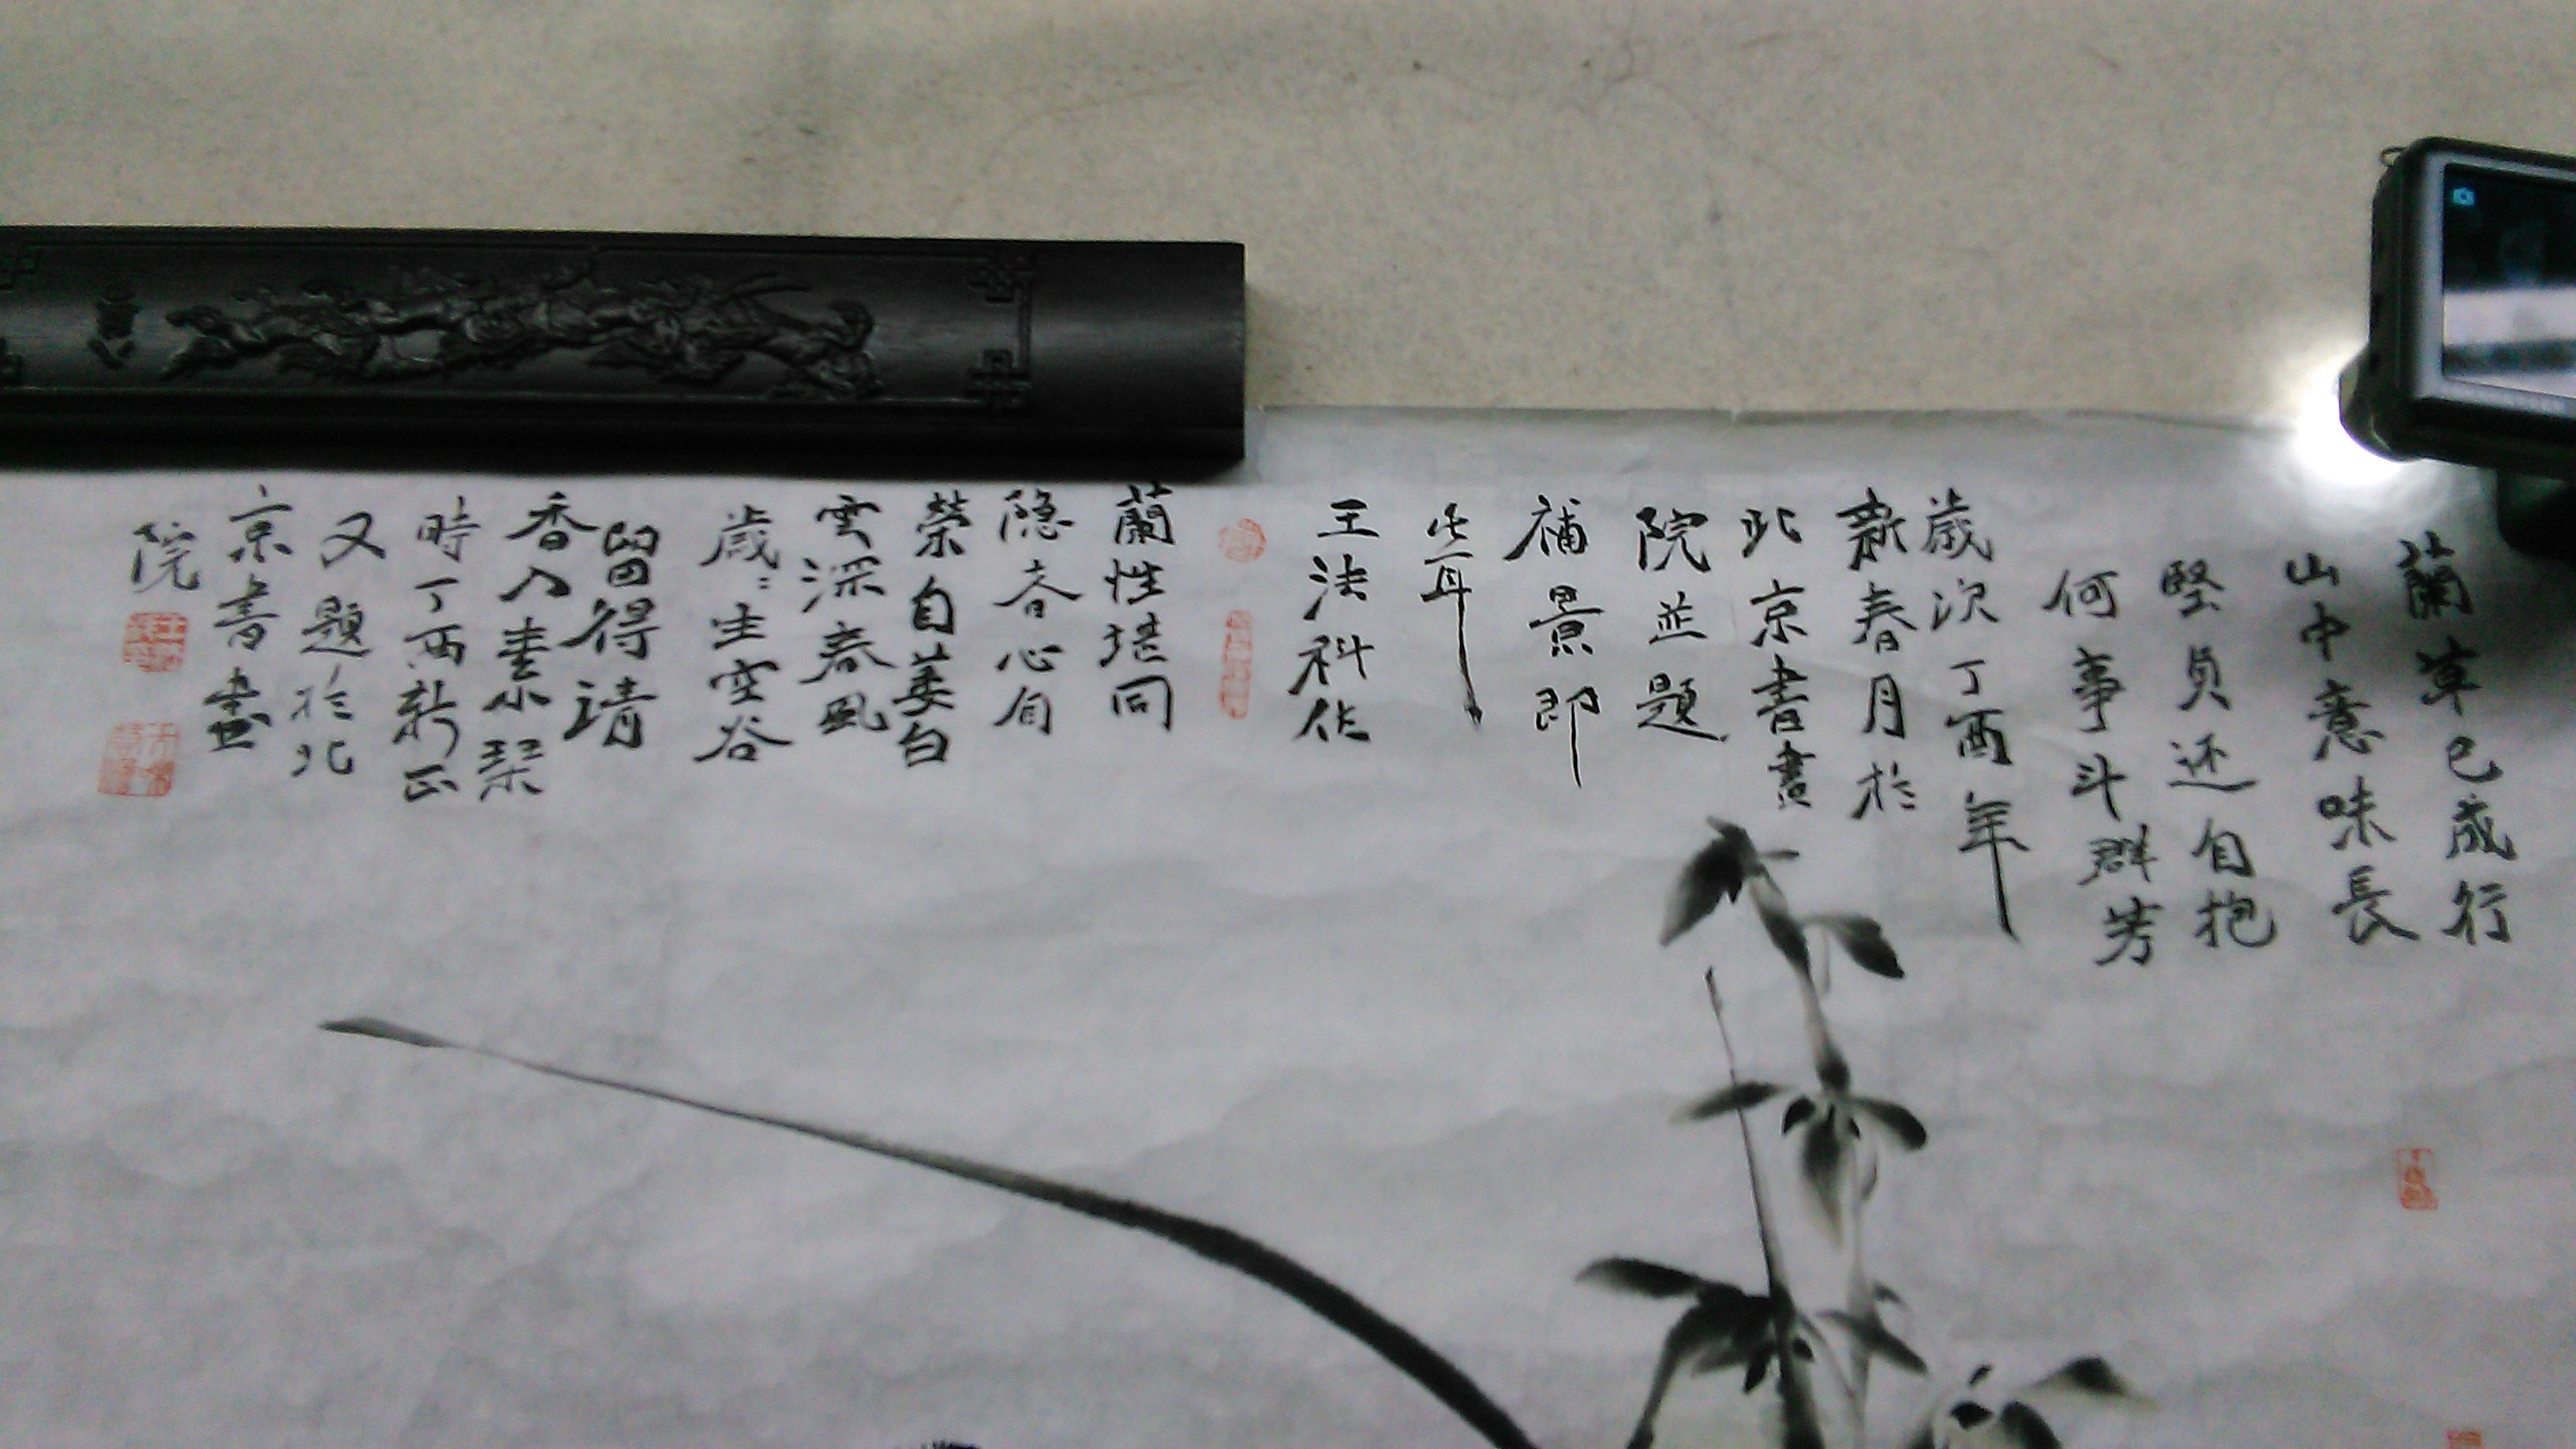 蘭草已成行
山中意味長
堅貞还自抱
何事斗群芳
歲次丁酉年
新春月於
北京書畫
院並題
補景即
王法科作
蘭性堪同
隐者心自
榮自萎白
雲深春風
歲々生空谷
留得清
香入素琴
時丁酉新正
又題於北
京書畫
院